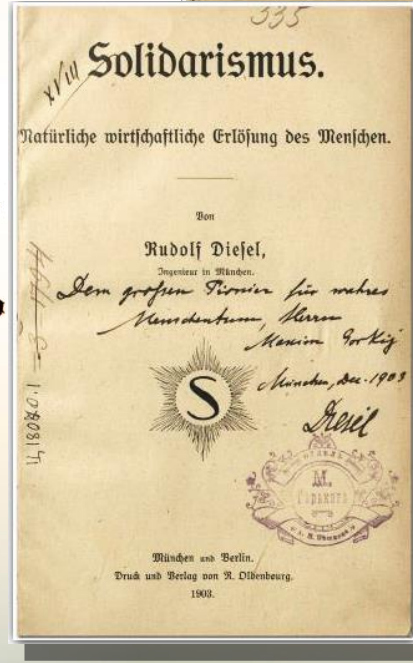 535
XVIII
Solidarismus.
Natürliche wirtschaftliche Erlösung des Menschen.
Von
Rudolf Diesel,
Ingenieur in München.
Dem großen Pionier für wahres
Menschentum, Herrn
Maxim Gorkij
München, Dec. 1903
Diesel
S
М.
Горького
München und Berlin.
Druck und Verlag von R. Oldenbourg.
1903.